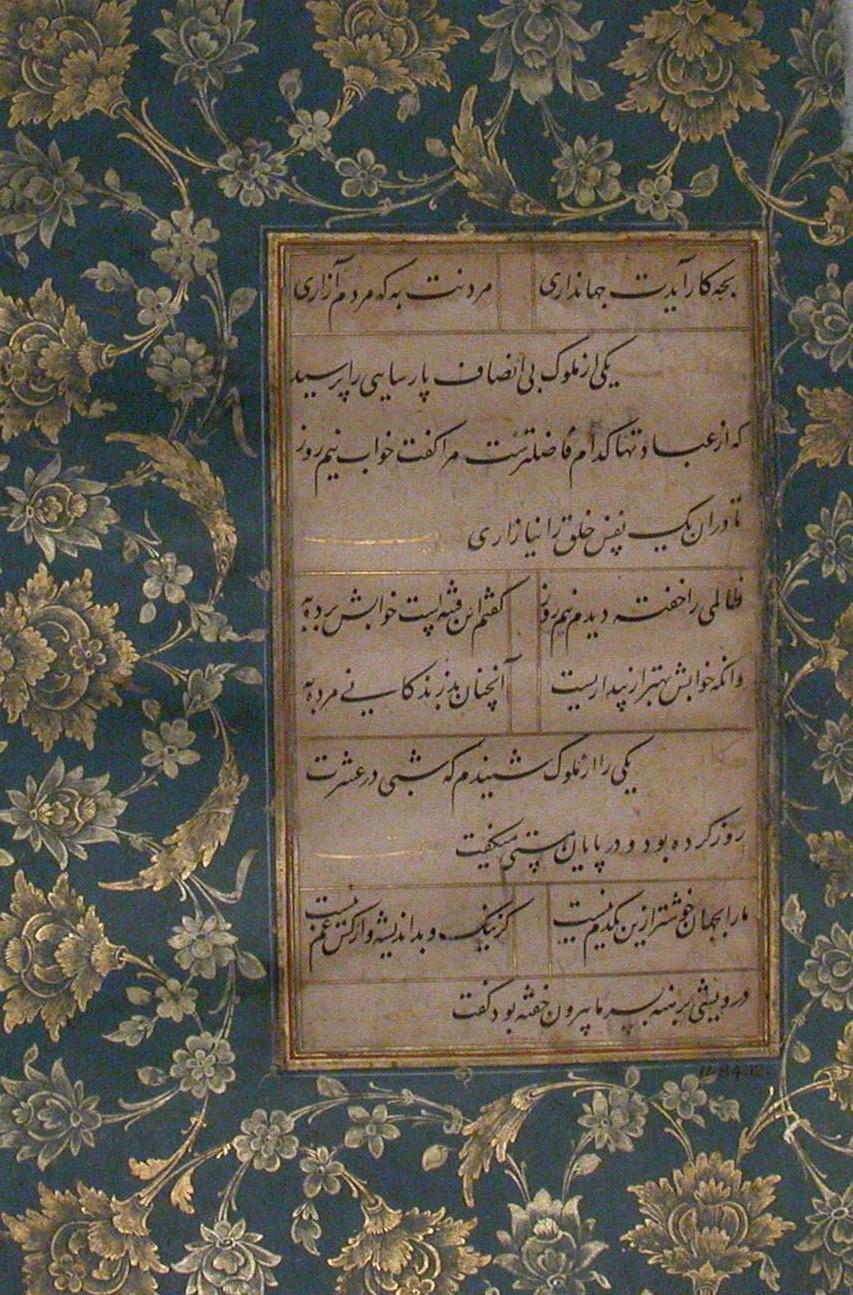 بچه کار آیدت جهانداری مردنت به که مردم آزاری
یکی از ملوک بی انصاف پارسایی را پرسید
که از عبادتها کدام فاضلترست مرا گفت خواب نیم روز
تا در ان یک نفس خلق را نیازاری
ظالمی را خفته دیدم نیم روز گفتم این فتنه است خوابش برده به
وانکه خوابش بهتر از بیداریست آنچنان بد زندگانی مرده به
یکی را از ملوک شنیدم که شبی در عشرت
روز کرده بود و در پایان مستی میگفت
ما را بجهان خوشتر ازین یکدم نیست کز نیک و بد اندیشه و از کس غم نیست
درویشی برهنه بسرما برون خفته بود گفت
11.84.12.